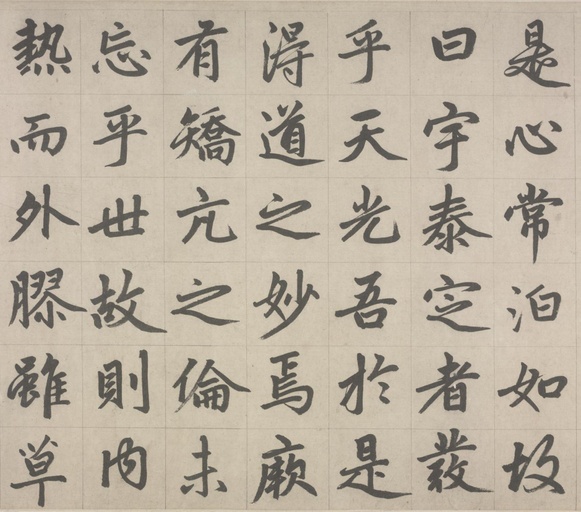 是心常泊如故
曰宇泰定者發
乎天光吾於是
得道之妙焉厥
有矯亢之倫未
忘乎世故則內
熱而外膠雖草